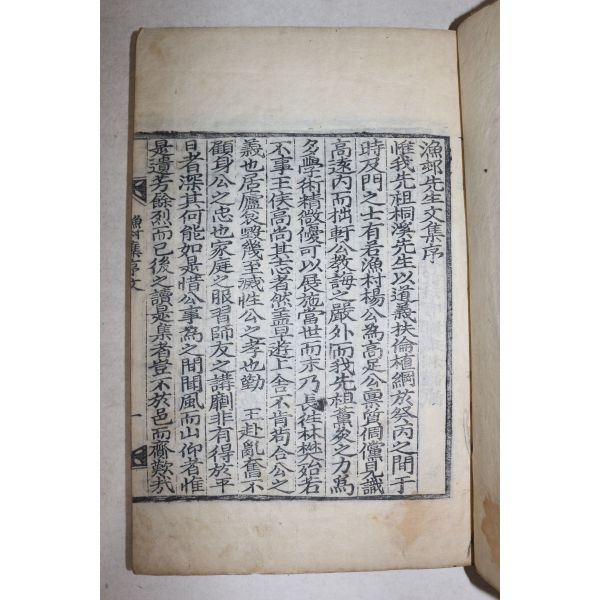 漁邨先生文集序
惟我先祖桐溪先生以道義扶倫植綱於癸丙之間于
時及門之士有若漁村楊公為高足公稟質倜儻自識
高遠內而拙軒公教誨之嚴外而我先祖薰炙之力為
多學術精微優可以展施當世而末乃長往林樊始若
不事王侯高尚其志者然盖早遊上舍不肯苟合公之
義也居廬哀毀幾至滅性公之孝也勤王赴亂奮不
顧身公之忠也家庭之服習師友之講劘非有得於平
日者深其何能如是惜公事為之間聞風而山仰者惟
是遺芳餘烈而已後之讀是集者豈不於邑而齎歎哉
漁村集序文 一